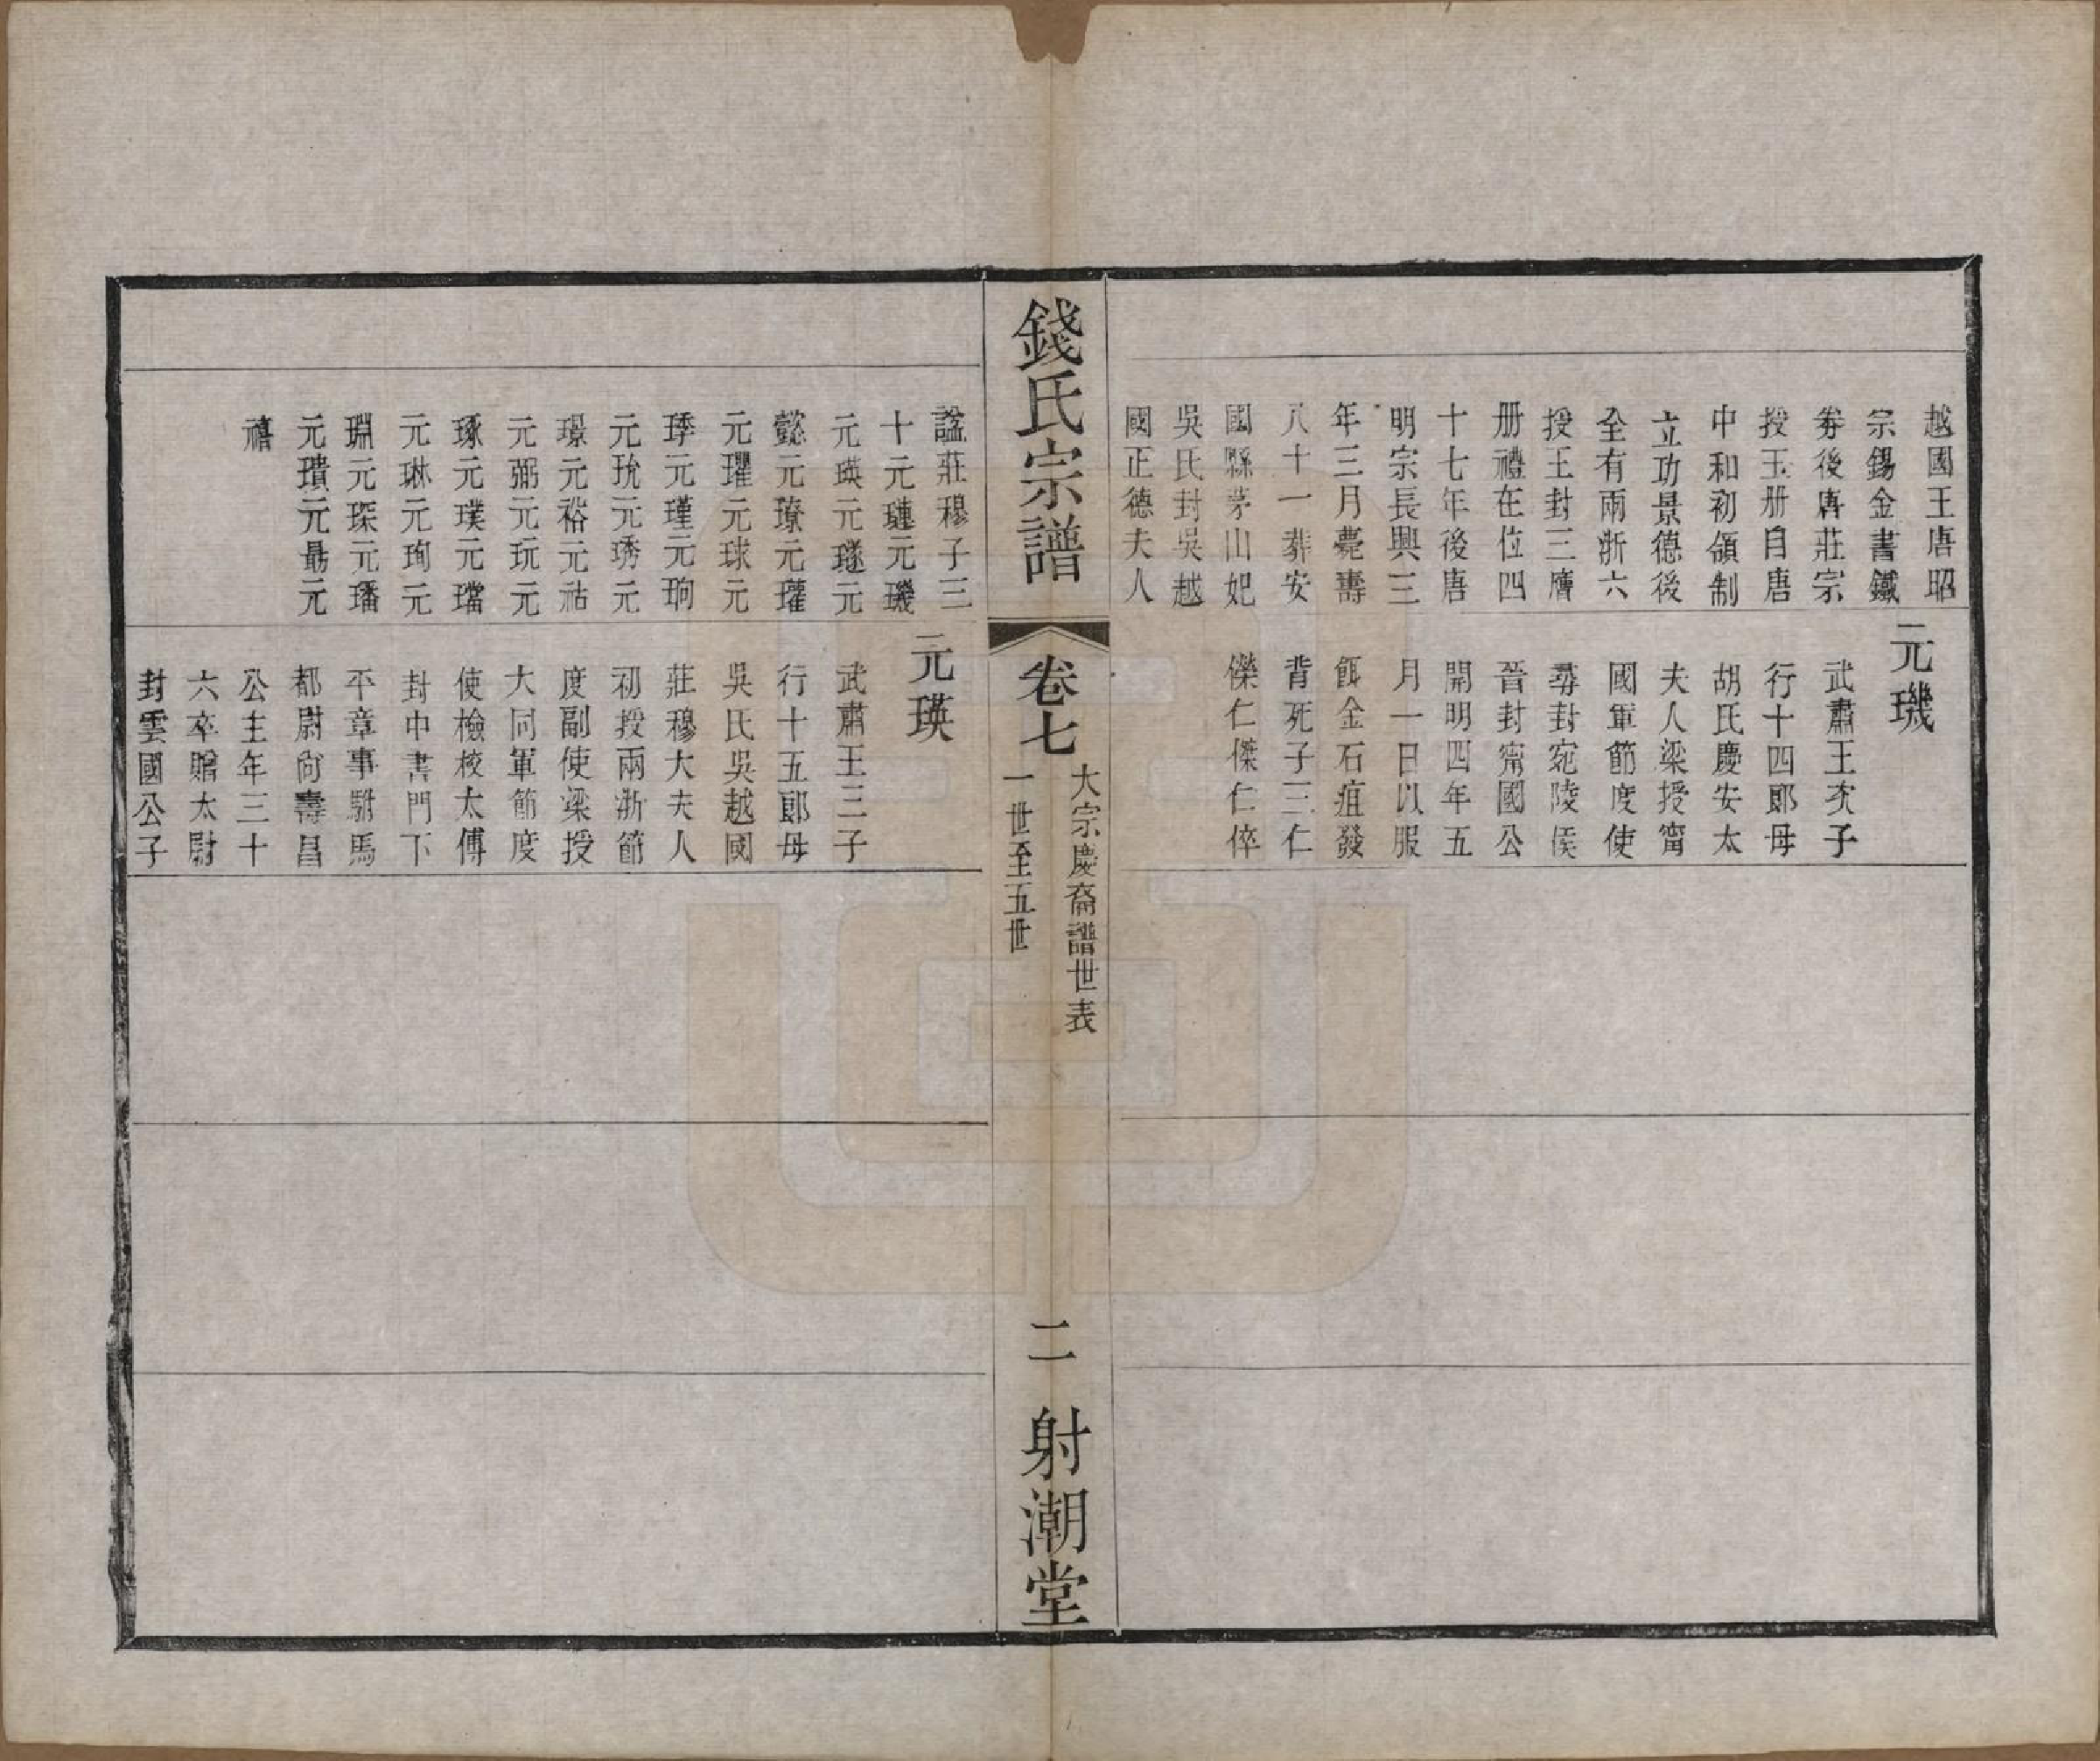 越國王唐昭
宗錫金書鐵
劵後唐莊宗
授玉册自唐
中和初領制
立功景德後
全有兩浙六
授王封三膺
册禮在位四
十七年後唐
明宗長興三
年三月薨壽
八十一葬安
國縣茅山妃
吳氏封吳越
國正德夫人
元璣
武肅王次子
行十四郎母
胡氏慶安太
夫人梁授甯
國軍節度使
尋封宛陵侯
晉封甯國公
開明四年五
月一日以服
餌金石疽發
背死子三仁
傑仁傑仁倅
錢氏宗譜
卷七
大宗慶裔譜世表
一世至五世
二
射潮堂
諡莊穆子三
十元璉元璣
元瑛元璲元
懿元璙元瓘
元㻿元球元
琗元瑾元珦
元玧元琇元
璟元裕元祜
元弼元玩元
琢元璞元璫
元琳元珣元
㻚元琛元璠
元璝元勗元
禧
元瑛
武肅王三子
行十五郎母
吳氏吳越國
莊穆大夫人
初授兩浙節
度副使梁授
大同軍節度
使檢校太傅
封中書門下
平章事駙馬
都尉尙壽昌
公主年三十
六卒贈太尉
封雲國公子